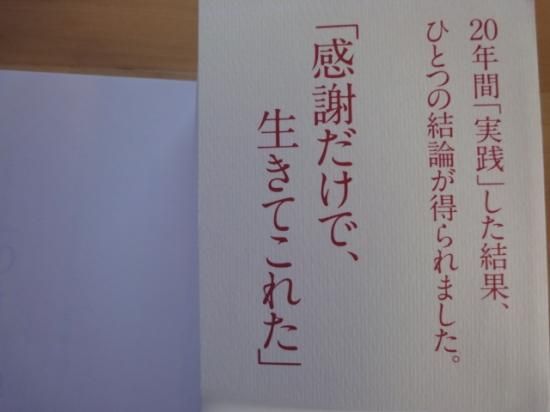 20年間「実践」した結果、
ひとつの結論が得られました。
「感謝だけで、
生きてこれた」